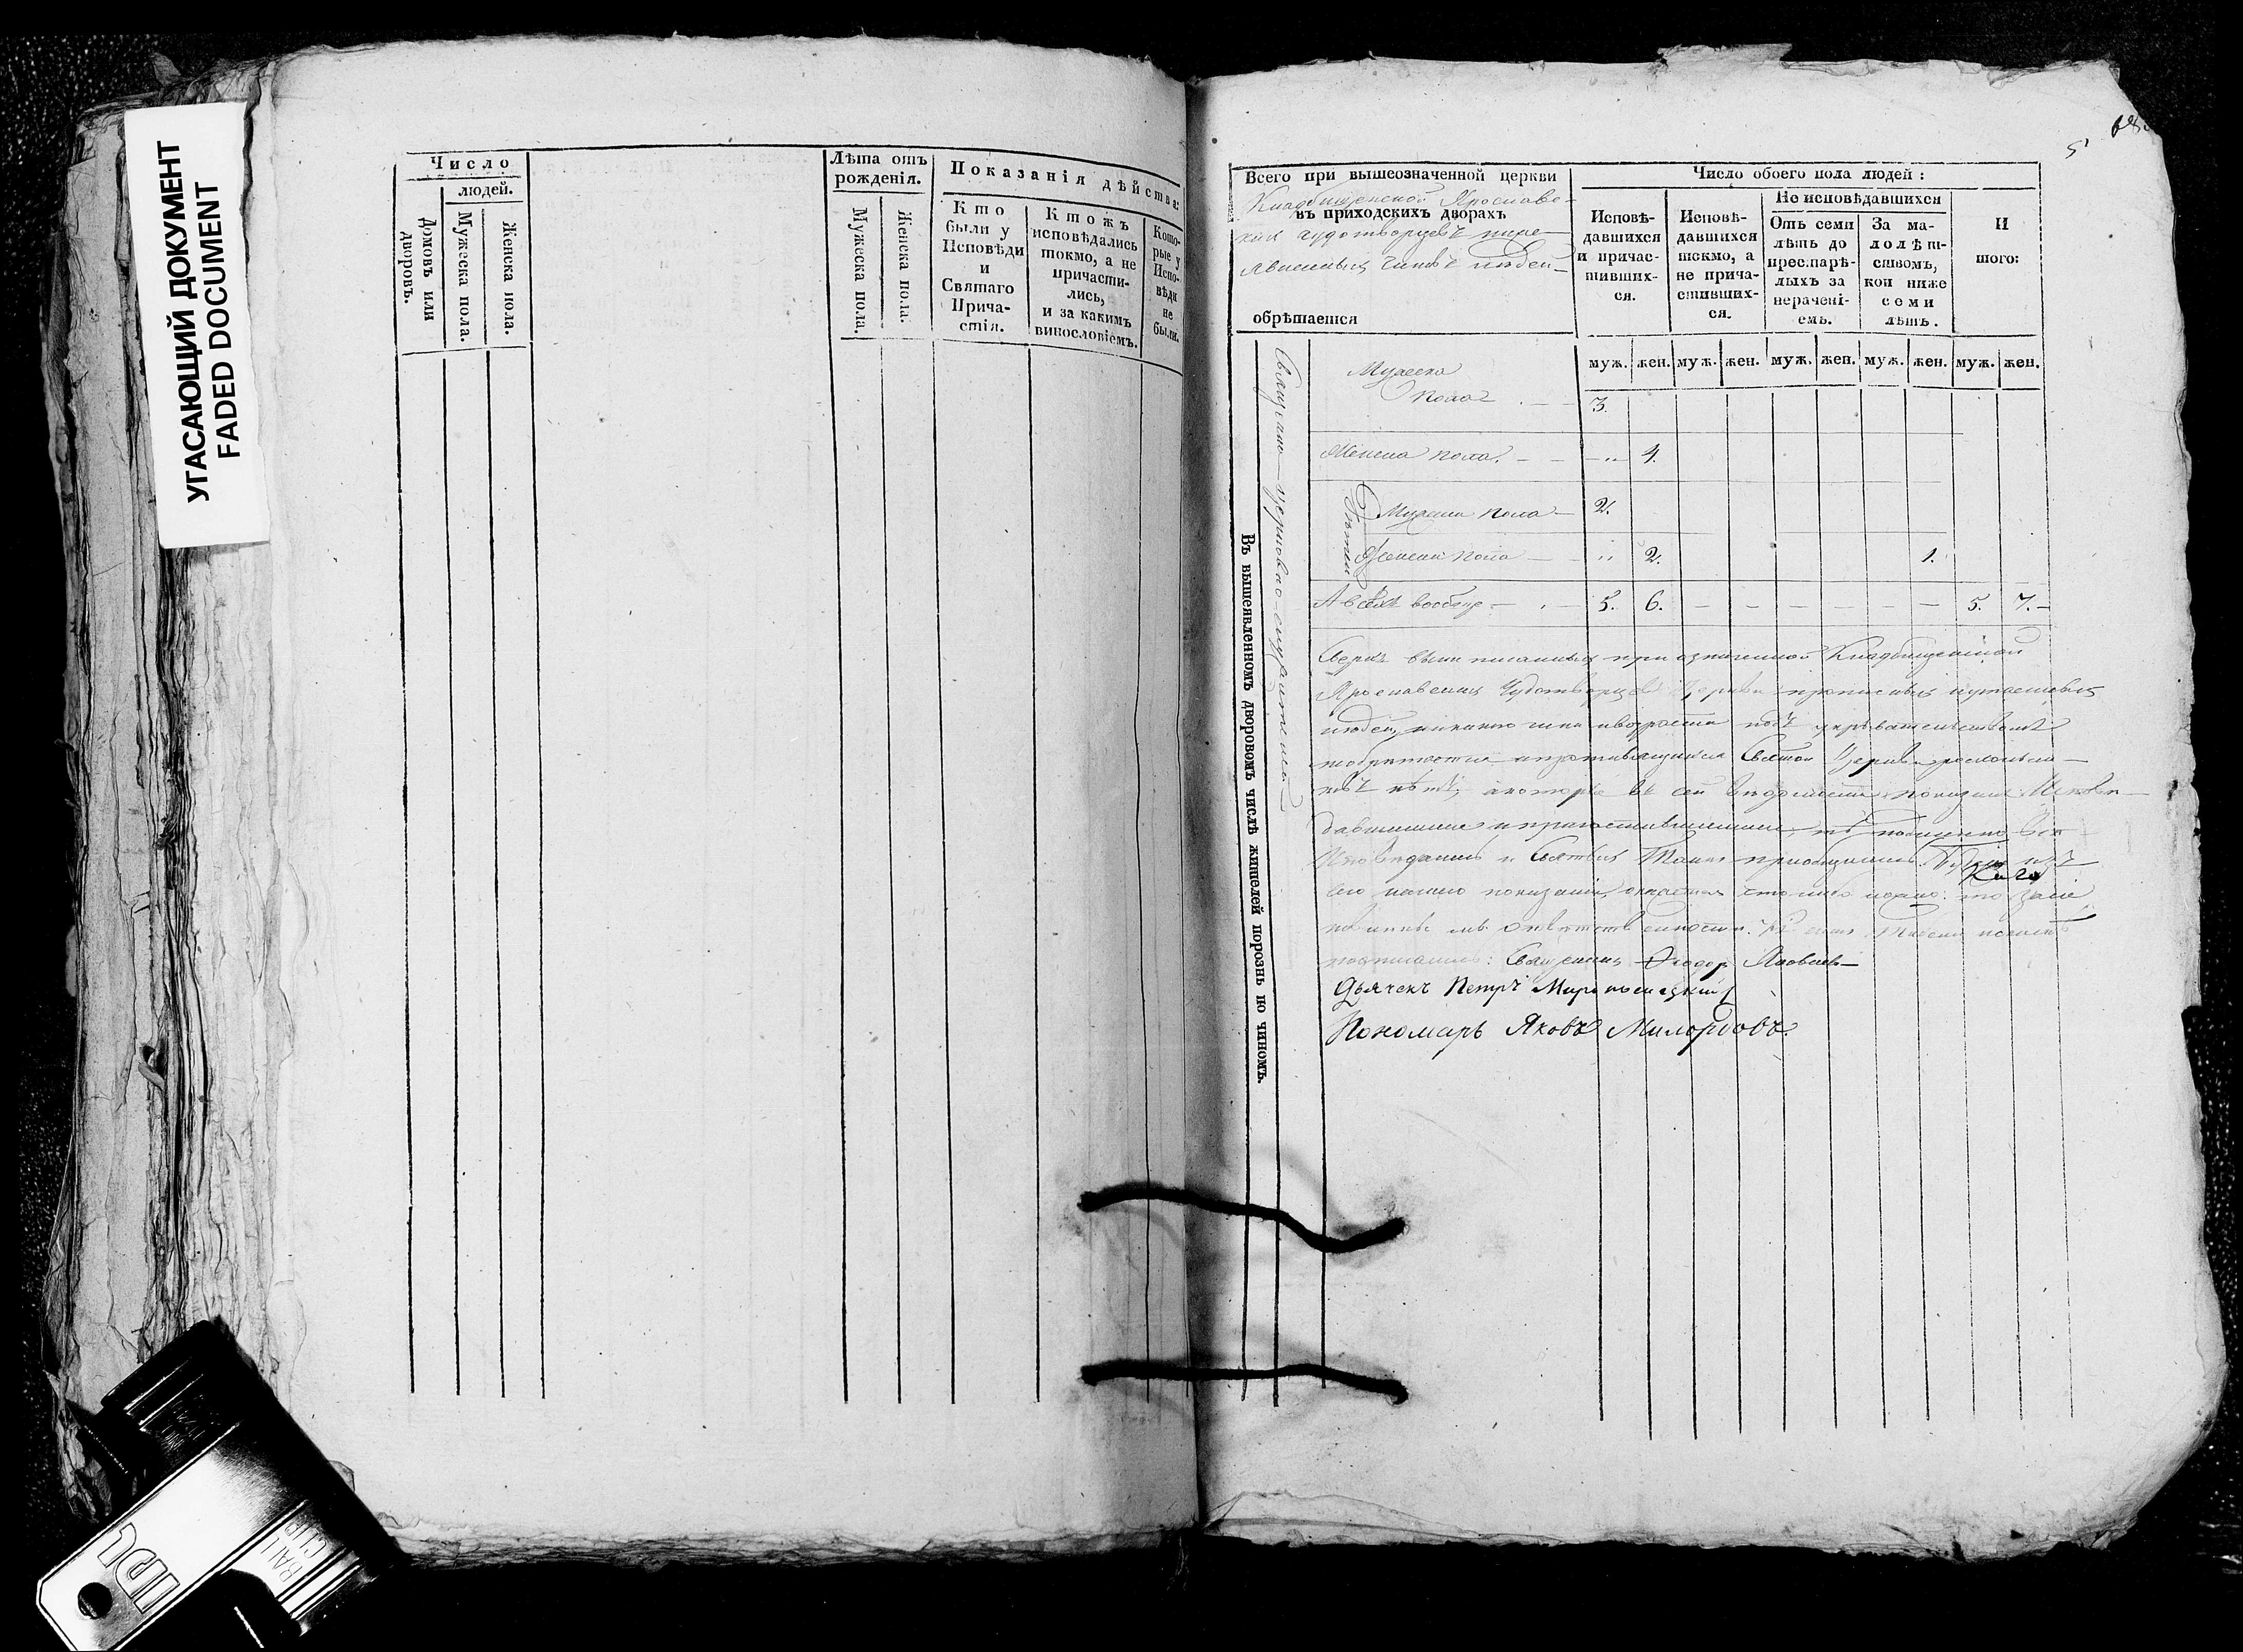 УГАСАЮЩИЙ ДОКУМЕНТ
FADED DOCUMENT
Число
людей.
Домовъ или дворовъ.
Мужеска пола.
Женска пола.
Лѣта отъ рожденія.
Мужеска пола.
Женска пола.
Показанія дѣйства:
Кто были у Исповѣди и Святаго Прича-стія.
Ктожъ исповѣдались токмо, а не причасти-лись, и за какимъ винословіемъ.
Кото-рые у Испо-вѣди не были.
5
Всего при вышеозначенной церкви
Кладбищенской Ярославс-
въ приходскихъ дворахъ
кихъ чудотворцевъ ниже-
явленныхъ чиновъ людей
обрѣтается
Число обоего пола людей:
Исповѣ-давшихся и причас-тивших-ся.
Исповѣ-давшихся токмо, а не прича-стивших-ся.
Не исповѣдавшихся
Отъ семи лѣтъ до престарѣ-лыхъ за нерачені-емъ.
За ма-лолѣт-ствомъ, кои ниже семи лѣтъ.
И шого:
муж. жен. муж. жен. муж. жен. муж. жен. муж. жен.
Въ вышеявленномъ дворовомъ числѣ жителей порознь по чиномъ.
Священно-церковно-служителей
Мужеска
пола 3.
Женска пола. 4.
Дѣтей
Мужеска пола 2.
Женска пола 2. 1.
А всѣхъ вообще 5. 6. 5. 7.
Сверхъ выше писанныхъ при означенной Кладбищенской
Ярославскихъ Чудотворцевъ Церкви прописныхъ и утаенныхъ
людей, никакого чина и возраста подъ укрывательствомъ
Святой Церкви
нѣтъ; а которые въ сей вѣдомости показаны Исповѣ-
давшимися и причастившимися, тѣ подлинно все
Исповѣдались и Святыхъ Таинъ приобщились.
Кого
сего нашего показанія окажется что либо ложно: то за сіе
подписались: Священникъ Ѳеодоръ Яковлевъ
Дьячекъ Петръ
Пономарь Яковъ Милордовъ.